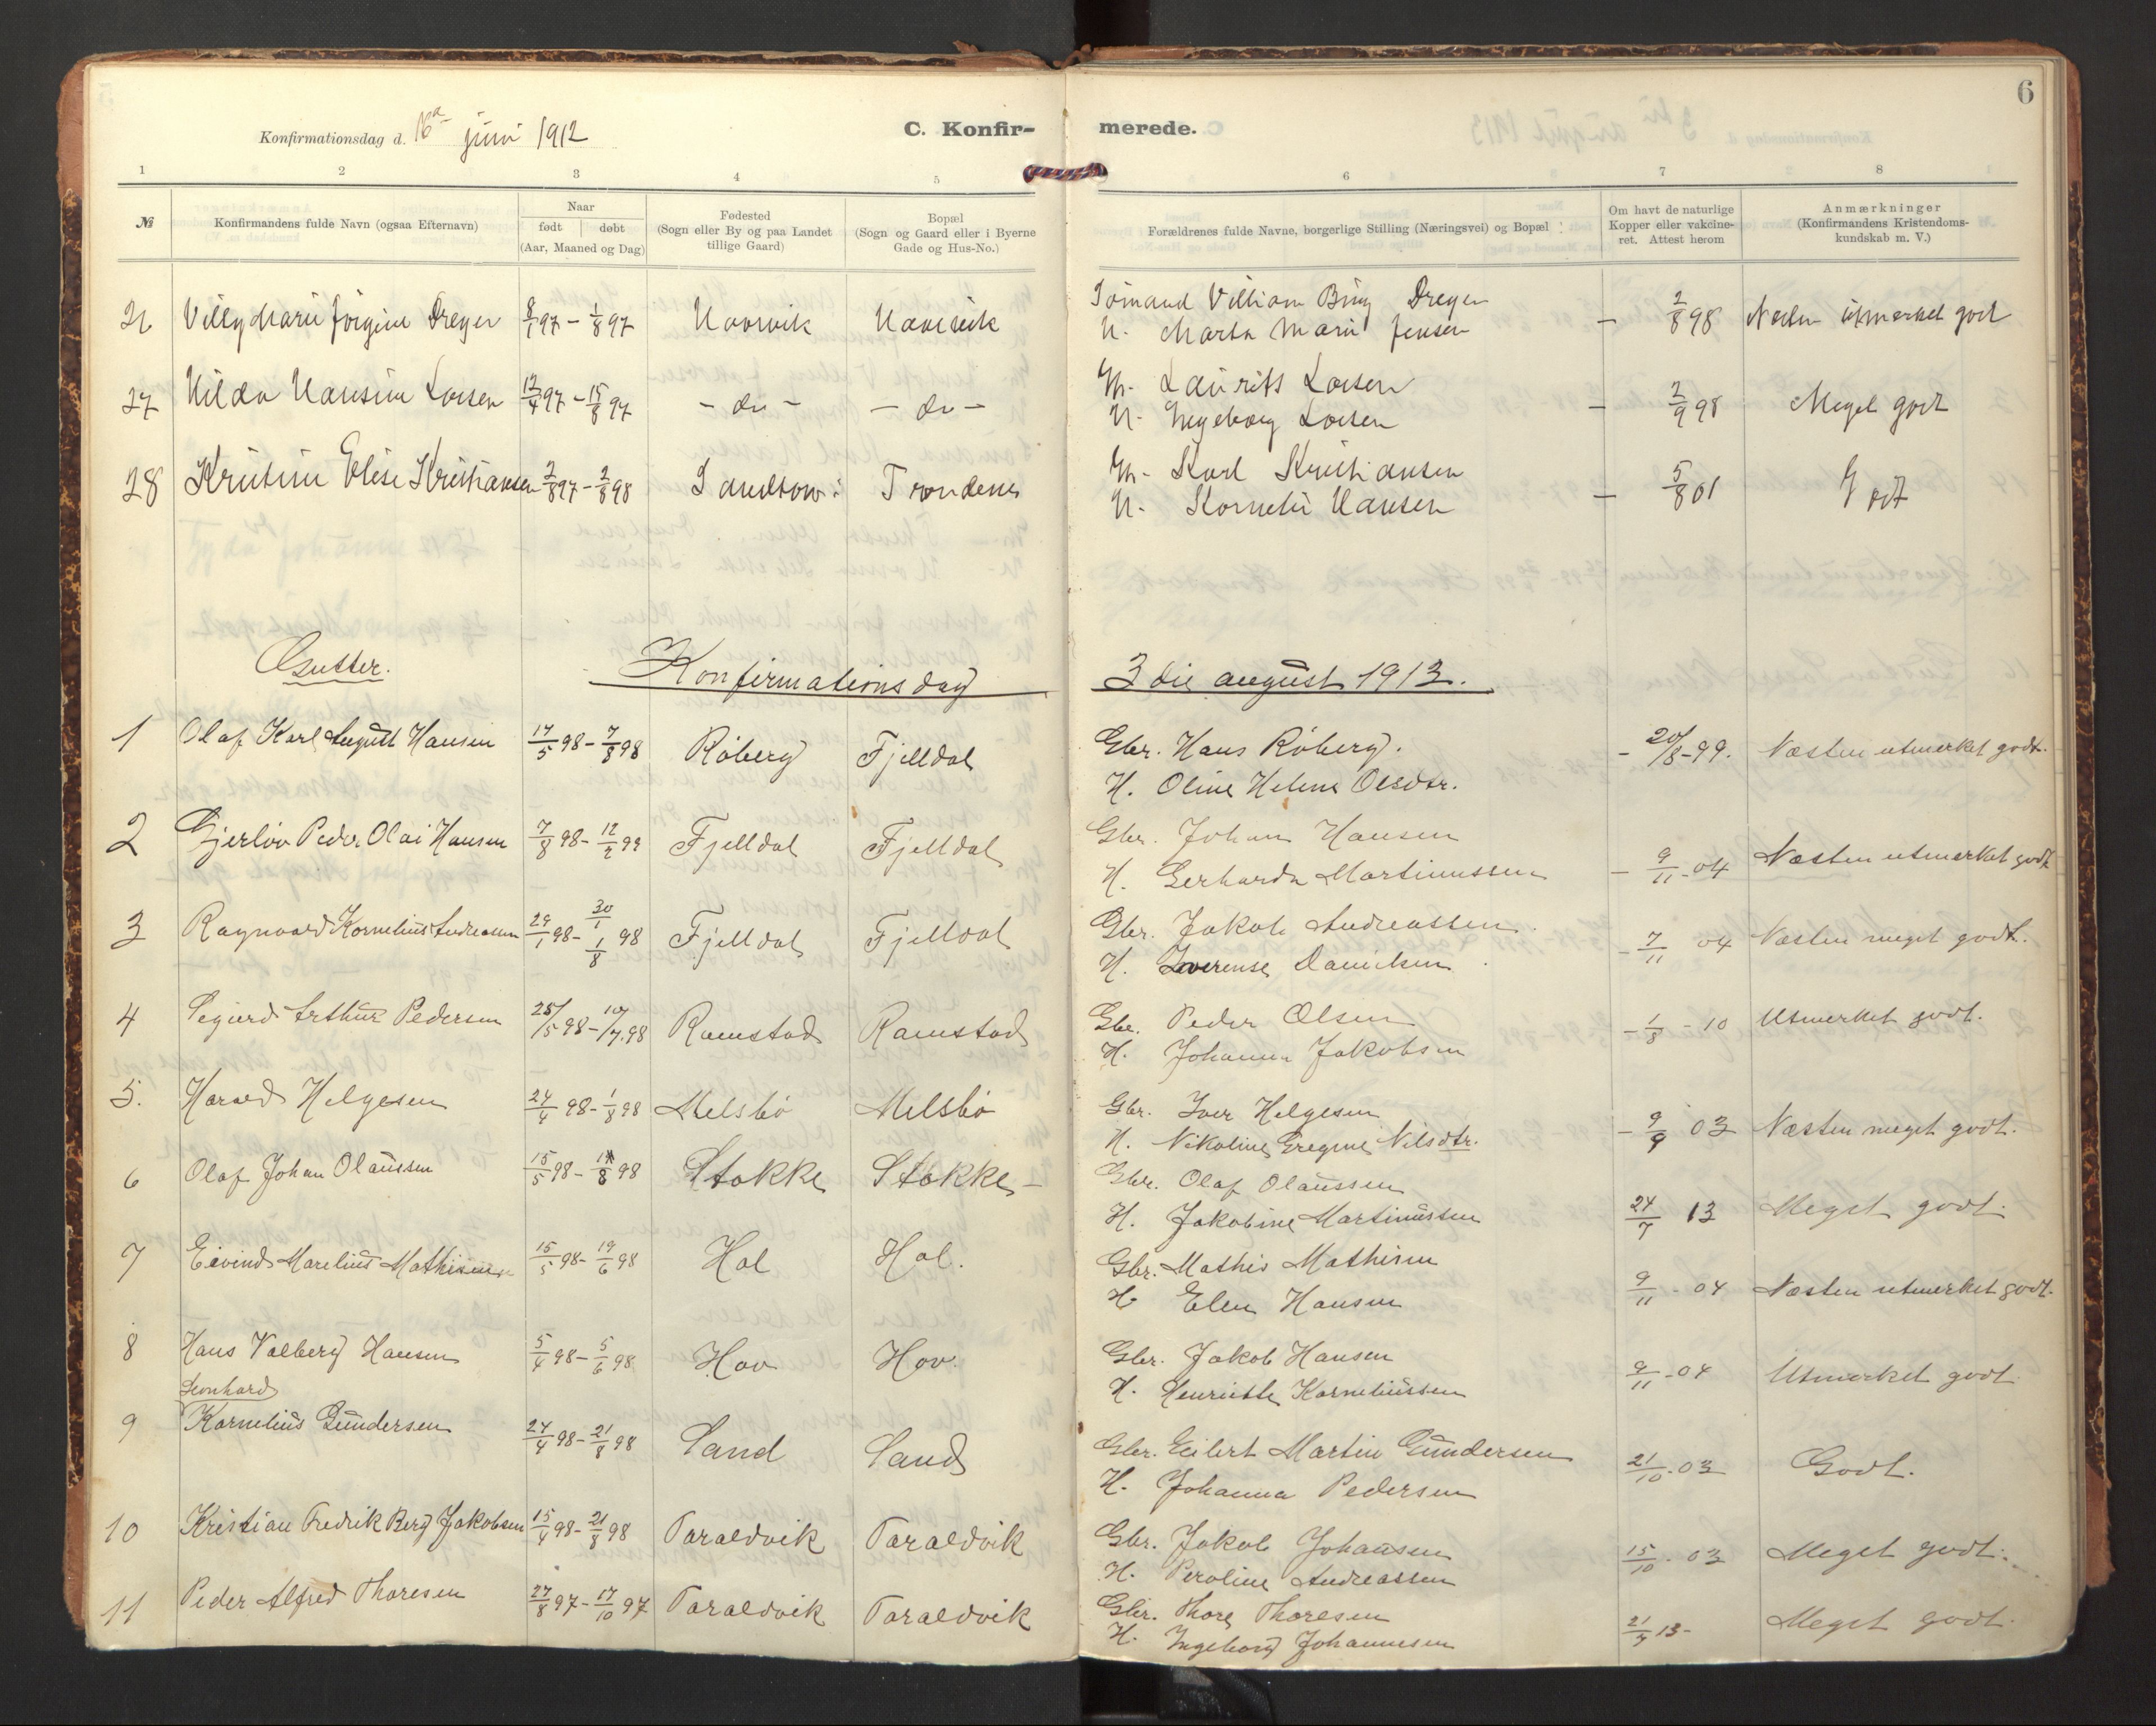 6
Konfirmationsdag d. 16de juni 1912
C. Konfirmerede.
1 2 3 4 5 6 7 8
№
Konfirmandens fulde Navn (ogsaa Efternavn)
Naar
født døbt
(Aar, Maaned og Dag)
Fødested
(Sogn eller By og paa Landet
tillige Gaard)
Bopæl
(Sogn og Gaard eller i Byerne
Gade og Hus-No.)
Forældrenes fulde Navne, borgerlige Stilling (Næringsvei) og Bopæl
Om havt de naturlige
Kopper eller vakcine-
ret. Attest herom
Anmærkninger
(Konfirmandens Kristendoms-
kundskab m. V.)
26 Villy Marie Jørgine Dreyer 8/1 97 – 1/8 97 Havnvik Havnvik
Vilhiam Bing Dreyer
H. Marta Marie Jensen
– 2/8 98 Næsten utmerket godt
27 Hilda Hansine Larsen 12/4 97 – 15/8 97 – do – – do –
M. Laurits Larsen
H. Ingeborg Larsen
– 2/9 98 Meget godt
28 Kristine Elise Kristiansen 2/8 97 – 2/8 98 Sandtorv: Trondenes
M. Karl Kristiansen
H. Kornelie Hansen
– 5/8 01 Godt
Gutter. Konfirmationsdag 3die august 1913.
1 Olaf Karl August Hansen 17/5 98 – 7/8 98 Råberg Fjelldal
Gbr. Hans Råberg.
H. Oline Helene Olsdtr.
– 20/8 – 99. Næsten utmerket godt.
2 Gjerløv Peder Olai Hansen 7/8 98 – 12/2 99 Fjelldal Fjelldal
Gbr. Johan Hansen
H. Gerharda Martinussen
– 9/11 – 04 Næsten utmerket godt
3 Ragnvald Kornelius Andreassen 29/1 98 – 30/1 1/8 98 Fjelldal Fjelldal
Gbr. Jakob Andreassen.
H. Lverense Danielsen
– 7/11 04 Næsten meget godt.
4 Sigurd Arthur Pedersen 25/5 98 – 10/7. 98 Ramstad Ramstad
Gbr. Peder Olsen
H. Johanna Jakobsen
– 1/8 – 10 Utmerket godt.
5. Harald Helgesen 24/4 98 – 1/8 98 Melsbø Melsbø
Gbr. Iver Helgesen
H. Nikoline Gregine Nilsdtr.
– 9/9 03 Næsten meget godt.
6 Olaf Johan Olaussen 15/5 98 – 8 98 Stokke Stokke –
Gbr. Olaf Olaussen
H. Jakobine Martinussen
24/7 13 Meget godt.
7 Eivind Marelius Mathisen 15/5 98 – 19/6 98 Hol Hol.
Gbr. Mathis Mathisen
H. Elen Hansen
9/11 – 04 Næsten utmerket godt.
8 Hans Valberg Hansen 5/4 98 – 5/6 98 Hov Hov.
Gbr. Jakob Hansen
H. Henriette Korneliussen
9/11 – 04 Utmerket godt
Leonhard
9 Kornelius Gundersen 24/4 98 – 21/8 98 Sand Sand
Gbr. Eilert Martin Gundersen
H. Johanna Pedersen
21/10. 03 Godt.
10 Kristian Fredrik Berg Jakobsen 15/4 98 – 21/8 98 Taraldvik Taraldvik
Gbr. Jakob Johansen
H. Peroline Andreassen
15/10. 03 Meget godt.
11 Peder Alfred Thoresen 27/8 97 – 17/10 97 Taraldvik Taraldvik
Gbr. Thore Thoresen
H. Ingeborg Johannesen
21/7 13 – Meget godt.